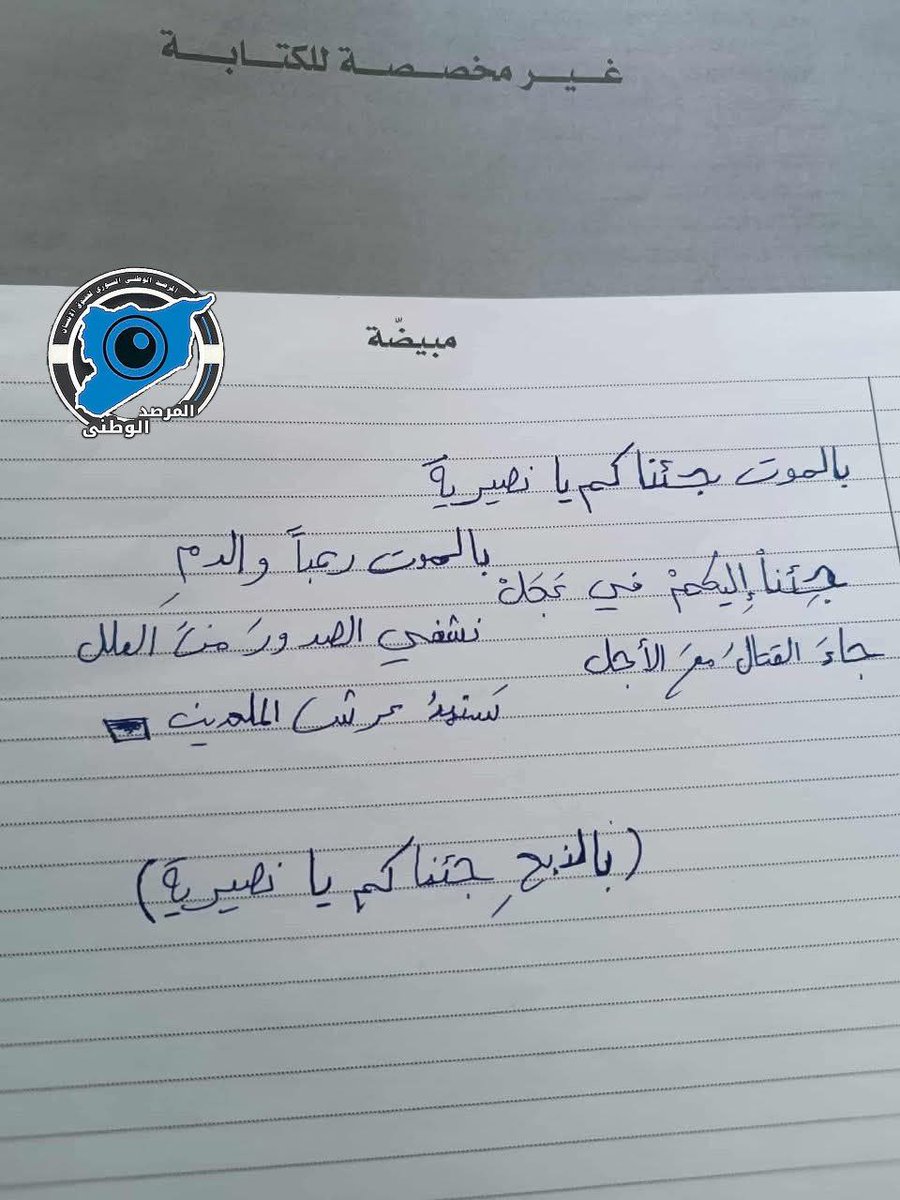 غير مخصصة للكتابة
المرصد الوطني السوري لحقوق الإنسان
المرصد
الوطني
مبيضّة
بالموت جئناكم يا نصيريةً
بالموت رعباً والدمِ
جِئناْ إليكمْ في عَجَلْ
نشفي الصدورَ منَ العلل
جاءَ القتالُ معَ الأجل
سنهدُ عرش الملحدين
(بالذبحِ جئناكم يا نصيريةً)